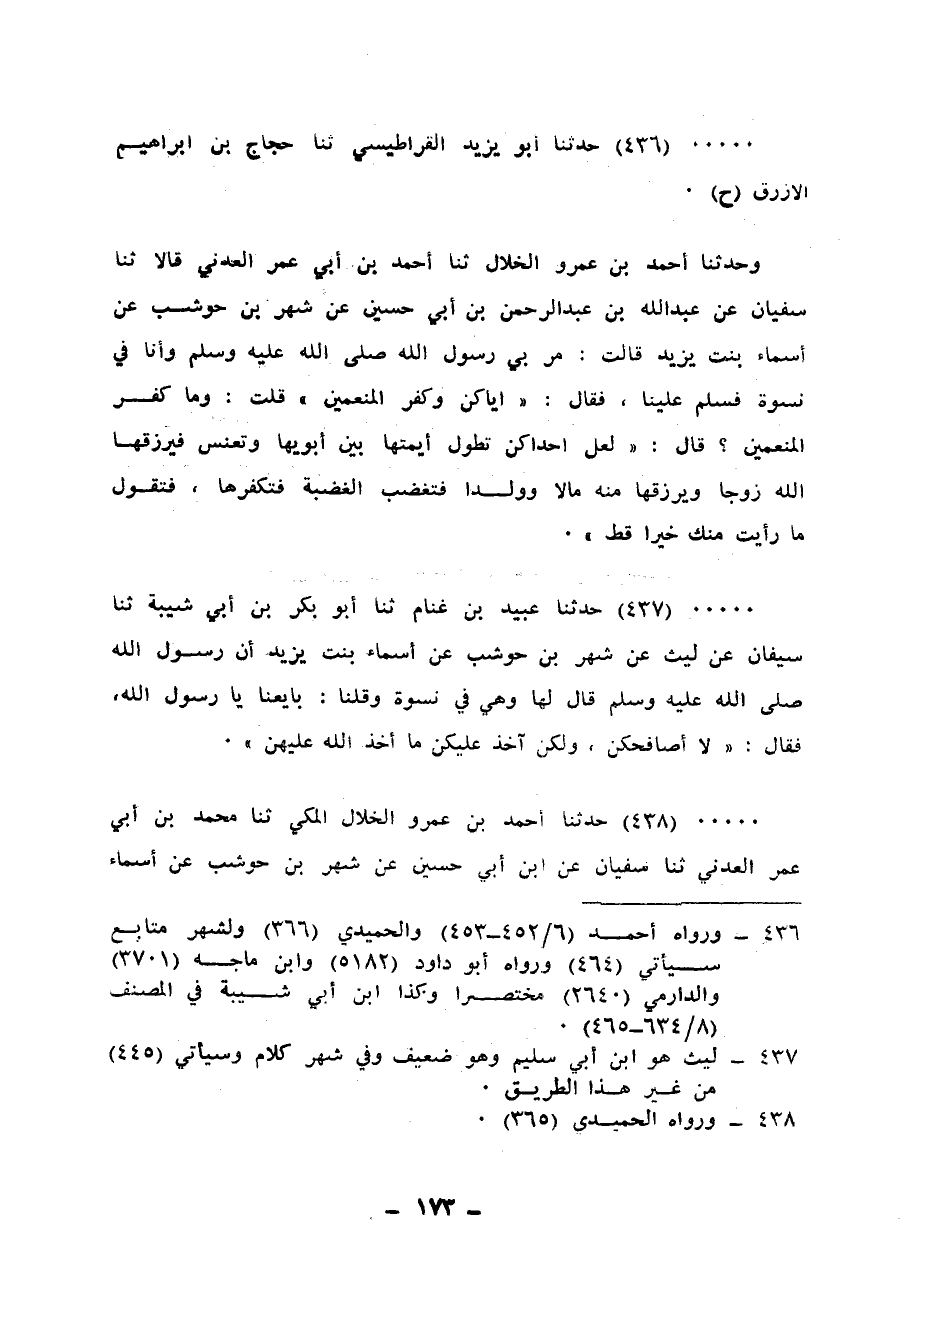 ٠٠٠٠٠ (٤٣٦) حدثنا أبو يزيد القراطيسي ثنا حجاج بن ابراهيم
الازرق (ح) ٠
وحدثنا أحمد بن عمرو الخلال ثنا أحمد بن أبي عمر العدني قالا ثنا
سفيان عن عبدالله بن عبدالرحمن بن أبي حسين عن شهر بن حوشب عن
أسماء بنت يزيد قالت : مر بي رسول الله صلى الله عليه وسلم وأنا في
نسوة فسلم علينا ، فقال : « اياكن وكفر المنعمين » قلت : وما كفر
المنعمين ؟ قال : « لعل احداكن تطول أيمتها بين أبويها وتعنس فيرزقها
الله زوجا ويرزقها منه مالا وولدا فتغضب الغضبة فتكفرها ، فتقول
ما رأيت منك خيرا قط » ٠
٠٠٠٠٠ (٤٣٧) حدثنا عبيد بن غنام ثنا أبو بكر بن أبي شيبة ثنا
سيفان عن ليث عن شهر بن حوشب عن أسماء بنت يزيد أن رسول الله
صلى الله عليه وسلم قال لها وهي في نسوة وقلنا : بايعنا يا رسول الله،
فقال : « لا أصافحكن ، ولكن آخذ عليكن ما أخذ الله عليهن » ٠
٠٠٠٠٠ (٤٣٨) حدثنا أحمد بن عمرو الخلال المكي ثنا محمد بن أبي
عمر العدني ثنا سفيان عن ابن أبي حسين عن شهر بن حوشب عن أسماء
٤٣٦ ـ ورواه أحمد (٤٥٢/٦ـ٤٥٣) والحميدي (٣٦٦) ولشهر متابع
سيأتي (٤٦٤) ورواه أبو داود (٥١٨٢) وابن ماجه (٣٧٠١)
والدارمي (٢٦٤٠) مختصرا وكذا ابن أبي شيبة في المصنف
(٦٣٤/٨ـ٤٦٥) ٠
٤٣٧ ـ ليث هو ابن أبي سليم وهو ضعيف وفي شهر كلام وسيأتي (٤٤٥)
من غير هذا الطريق ٠
٤٣٨ ـ ورواه الحميدي (٣٦٥) ٠
ـ ١٧٣ ـ